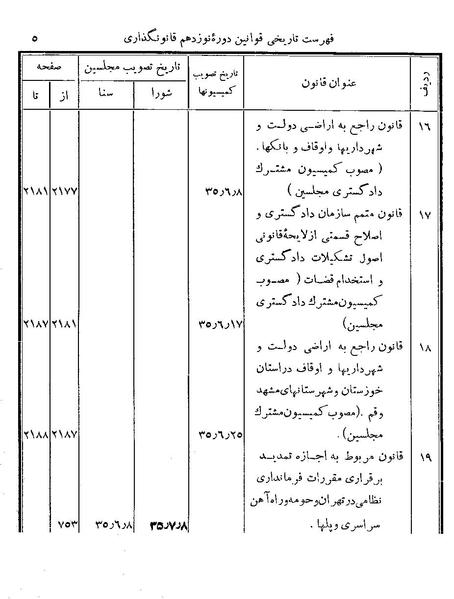 فهرست تاریخی قوانین دورهٔ نوزدهم قانونگذاری ۵
ردیف عنوان قانون تاریخ تصویب کمیسیونها تاریخ تصویب مجلسین صفحه
شورا سنا از تا
۱۶ قانون راجع به اراضی دولت و
شهرداریها و اوقاف و بانکها.
( مصوب کمیسیون مشترک
دادگستری مجلسین ) ۳۵٫۶٫۸ ۲۱۷۷ ۲۱۸۱
۱۷ قانون متمم سازمان دادگستری و
اصلاح قسمتی از لایحهٔ قانونی
اصول تشکیلات دادگستری
و استخدام قضات ( مصوب
کمیسیون مشترک دادگستری
مجلسین) ۳۵٫۶٫۱۷ ۲۱۸۱ ۲۱۸۷
۱۸ قانون راجع به اراضی دولت و
شهرداریها و اوقاف در استان
خوزستان و شهرستانهای مشهد
و قم .(مصوب کمیسیون مشترک
مجلسین). ۳۵٫۶٫۲۵ ۲۱۸۷ ۲۱۸۸
۱۹ قانون مربوط به اجازه تمدید
برقراری مقررات فرمانداری
نظامی در تهران و حومه و راه آهن
سراسری و پلها . ۳۵٫۷٫۸ ۳۵٫۶٫۸ ۷۵۳